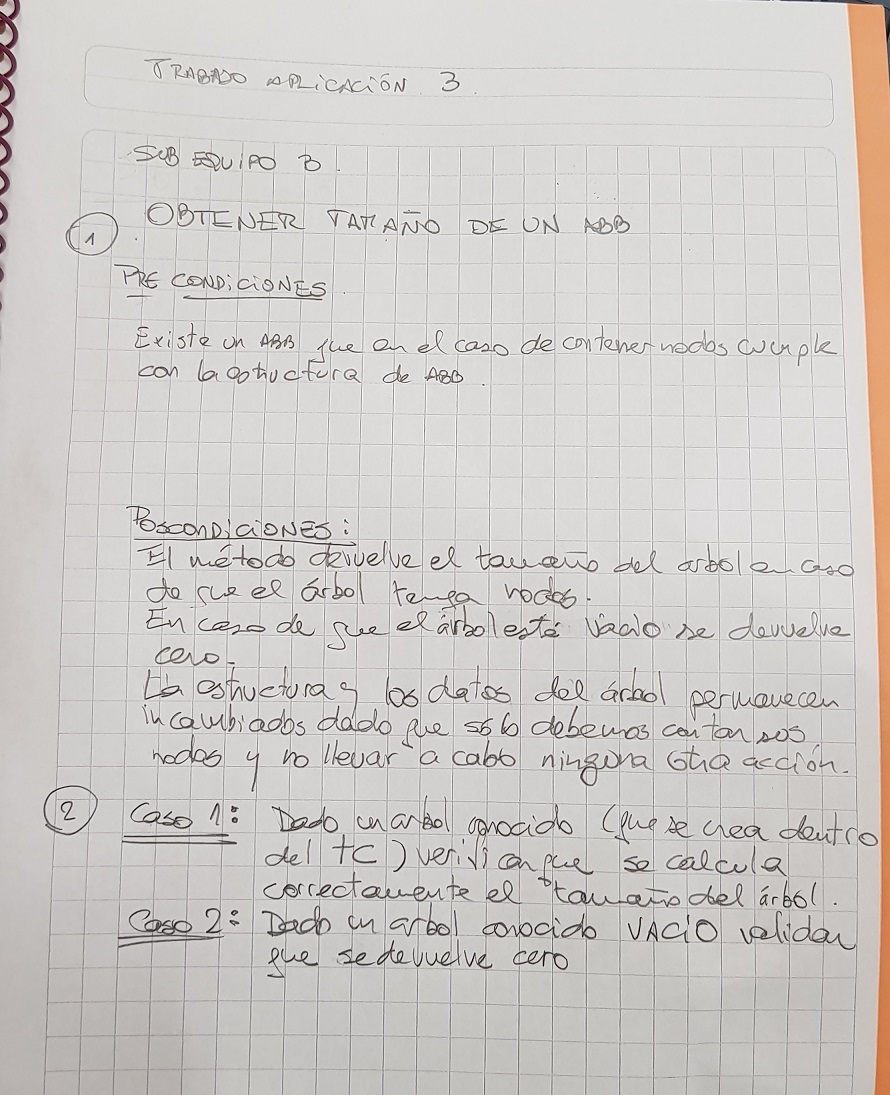 TRABAJO APLICACIÓN 3.
SUB EQUIPO B.
1
OBTENER TAMAÑO DE UN ABB
PRE CONDICIONES.
Existe un ABB que en el caso de contener nodos cumple
con la estructura de ABB.
POSCONDICIONES:
El método devuelve el tamaño del arbol en caso
de que el árbol tenga nodos.
En caso de que el árbol esté vacío se devuelve
cero.
La estructura y los datos del árbol permanecen
incambiados dado que sólo debemos contar sus
nodos y no llevar a cabo ninguna otra acción.
2 Caso 1: Dado un arbol conocido (que se crea dentro
del TC) verificar que se calcula
correctamente el tamaño del árbol.
Caso 2: Dado un arbol conocido VACIO validar
que se devuelve cero